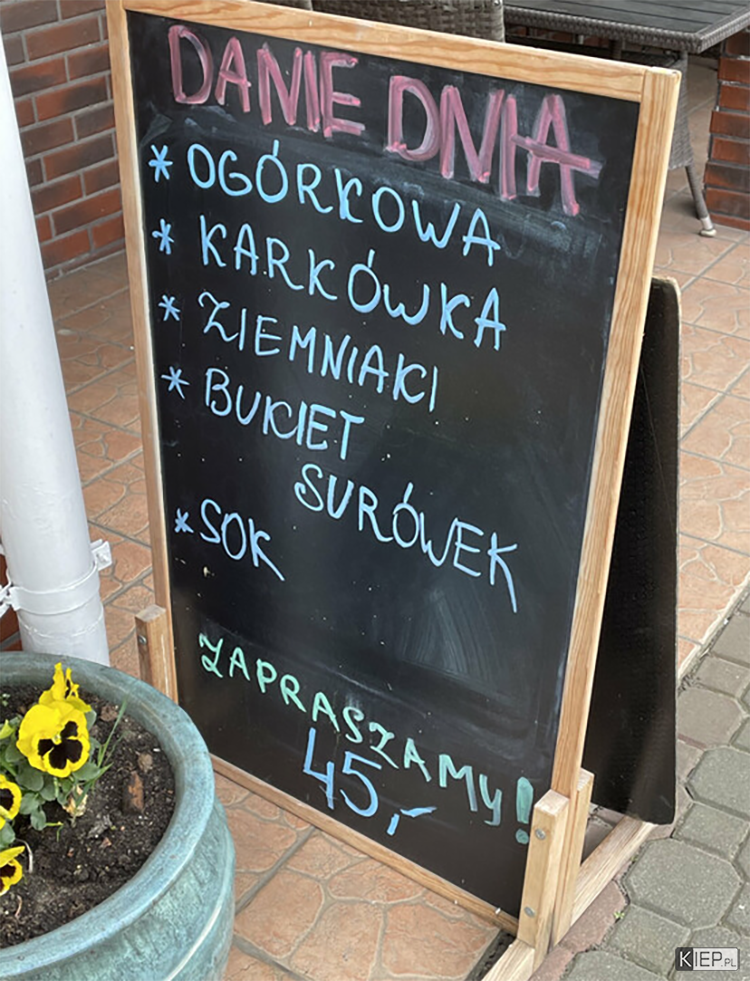 DANIE DNIA
* OGÓRKOWA
* KARKÓWKA
* ZIEMNIAKI
* BUKIET
SURÓWEK
* SOK
ZAPRASZAMY!
45,-
KIEP.PL